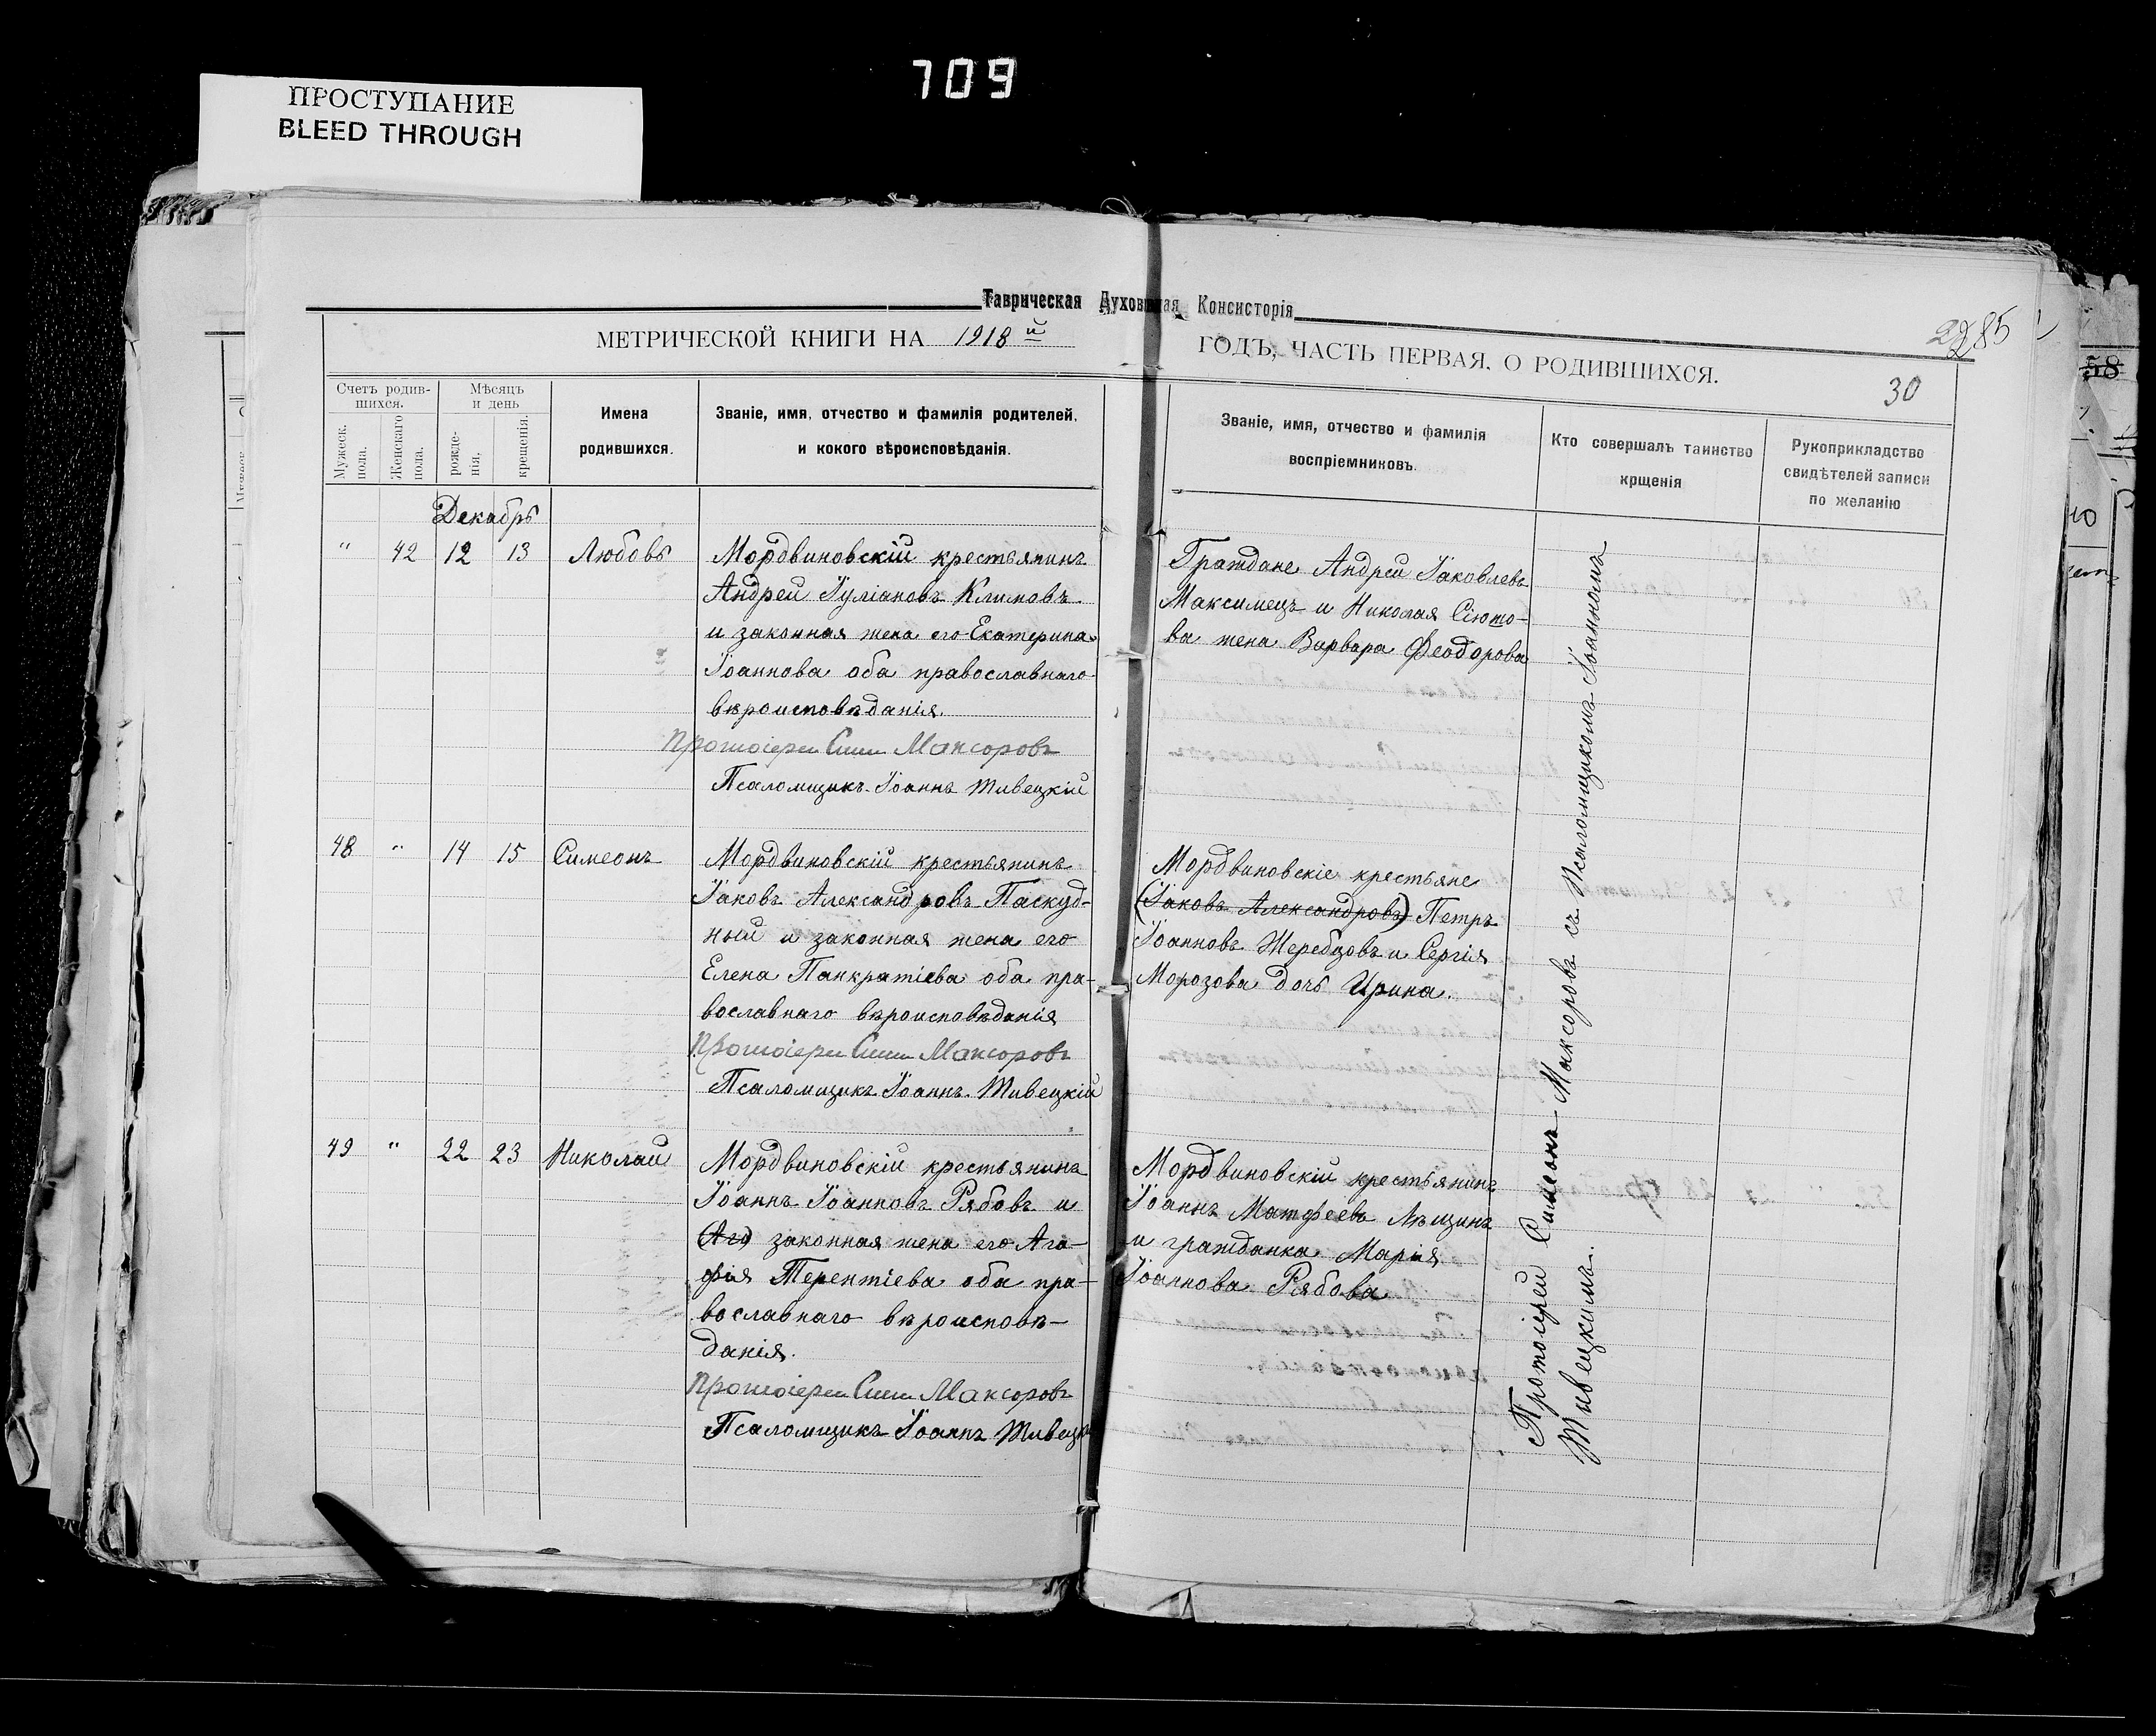 709
ПРОСТУПАНИЕ
BLEED THROUGH
Таврическая Духовная Консисторія
МЕТРИЧЕСКОЙ КНИГИ НА 1918й
ГОДЪ, ЧАСТЬ ПЕРВАЯ, О РОДИВШИХСЯ.
285
30
58
Счетъ родив-
шихся.
Мужеск.
пола.
Женскаго
пола.
Мѣсяцъ
и день
рожде-
нія.
крещенія.
Имена
родившихся.
Званіе, имя, отчество и фамилія родителей,
и кокого вѣроисповѣданія.
Званіе, имя, отчество и фамилія
воспріемниковъ.
Кто совершалъ таинство
крщенія
Рукоприкладство
свидѣтелей записи
по желанію
Декабрь
" 42 12 13 Любовь
Мордвиновскій крестьянинъ
Андрей Іуліановъ Климовъ
и законная жена его Екатерина
Іоаннова оба православнаго
вѣроисповѣданія.
Протоіерей Симе Максоровъ
Псаломщикъ Іоаннъ Тивецкій
Граждане Андрей Іаковлевъ
Максимецъ и Николая Сіюто-
ва жена Варвара Феодорова
48 " 14 15 Симеонъ
Мордвиновскій крестьянинъ
Іаковъ Александровъ Паскуд-
ный и законная жена его
Елена Панкратіева оба пра-
вославнаго вѣроисповѣданія
Протоіерей Симе Максоровъ
Псаломщикъ Іоаннъ Тивецкій
Мордвиновскіе крестьяне
(Іаковъ Александровъ) Петръ
Іоанновъ Жеребцовъ и Сергія
Морозова дочь Ирина.
49 " 22 23 Николай
Мордвиновскій крестьянинъ
Іоаннъ Іоанновъ Рябовъ и
(Аго) законная жена его Ага-
фія Терентіева оба пра-
вославнаго вѣроисповѣ-
данія.
Протоіерей Симе Максоровъ
Псаломщикъ Іоаннъ Тивецк
Мордвиновскій крестьянинъ
Іоаннъ Матфеевъ Лѣщинъ
и гражданка Марія
Іоаннова Рябова
Протоіерей Симеонъ Максоровъ съ Псаломщикомъ Іоанномъ
Тивецкимъ.